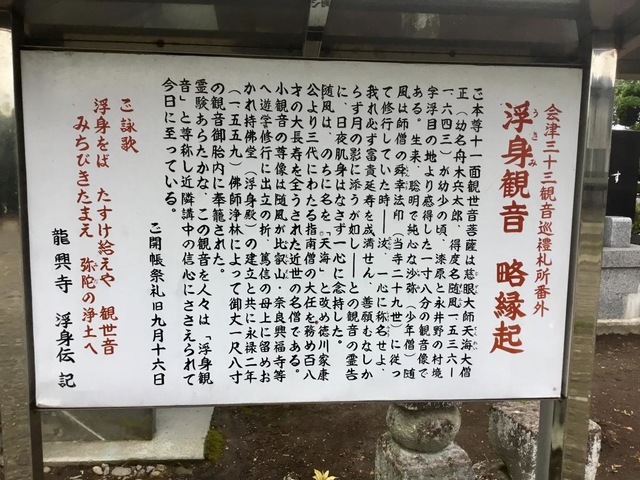 会津三十三観音巡禮札所番外
浮身観音 略縁起
うきみ
ご本尊十一面観世音菩薩は慈眼大師天海大僧
正(幼名舟木兵太郎、得度名随風一五三六ー
一六四三)が幼少の頃、漆原と永井野の村境
字浮目の地より感得した一寸八分の観音像で
ある。生来、聡明で純心な沙弥(少年僧)随
風は師僧の舜幸法印(当寺二十九世)に従っ
て修行していた時──汝、一心に称名せよ、
我れ必ず富貴延寿を成満せん、善願むなしか
らず月の影に添うが如し──との観音の霊告
に、日夜肌身はなさず一心に念持した。
随風は、のちに名を「天海」と改め徳川家康
公より三代にわたる指南僧の大任を務め百八
才の大長寿を全うされた近世の名僧である。
小観音の尊像は随風が比叡山・奈良興福寺等
へ遊学修行に出立の折、篤信の母上に留めお
かれ持佛堂(浮身殿)の建立と共に永禄二年
(一五五九)佛師浄林によって御丈一尺八寸
の観音御胎内に奉籠された。
霊験あらたかな、この観音を人々は「浮身観
音」と尊称し近隣講中の信心にささえられて
今日に至っている。
ご開帳祭礼旧九月十六日
ご詠歌
浮身をば たすけ給えや 観世音
みちびきたまえ 弥陀の浄土へ
龍興寺 浮身伝記